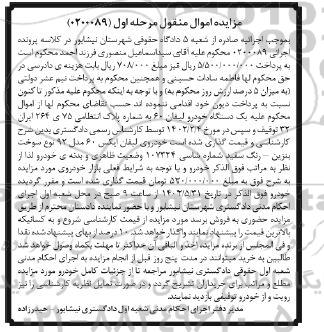 مزایده اموال منقول مرحله اول (۰۲۰۰۰۸۹)
بموجب اجرائیه صادره از شعبه ۵ دادگاه حقوقی شهرستان نیشابور در کلاسه پرونده
اجرائی ۰۲۰۰۰۸۹ محکوم علیه آقای سیداسماعیل منصوری فرزند احمد محکوم است
به پرداخت ۵/۵۰۰/۰۰۰/۰۰۰ ریال قیز مبلغ ۷۰۸/۰۰۰ ریال بابت هزینه ی دادرسی در
حق محکوم لها فاطمه سادات حسینی و همچنین محکوم به پرداخت نیم عشر دولتی
(به میزان ۵ درصد ارزش روز محکوم به) و با توجه به اینکه محکوم علیه مذکور تا کنون
نسبت به پرداخت دیون خود اقدامی ننموده اند حسب تقاضای محکوم لها از اموال
محکوم علیه یک دستگاه خودرو لیفان ۶۰ به شماره پلاک انتظامی ۷۵ ی ۲۶۴ ایران
۳۲ توقیف و سپس در مورخ ۱۴۰۲/۲/۴ توسط کارشناس رسمی دادگستری بدین شرح
کارشناسی و قیمت گذاری شده است خودروی لیفان ایکس ۶۰ مدل ۹۲ نوع سوخت
بنزین – رنگ سفید شماره شاسی ۱۰۷۳۲۴ وضعیت ظاهری و بدنه ی خودرو لذا از
نظر به مراتب فوق الذکر خودرو و با توجه به شرایط فعلی بازار خودروی مورد مزایده
به شرح فوق به مبلغ ۵۳۰۰/۰۰۰/۰۰۰ تومان قیمت گذاری شده است و مقرر گردیده
خودرو فوق الذکر در تاریخ ۱۴۰۲/۵/۳۱ از ساعت ۹ صبح در محل شعبه اول اجرای
احکام مدنی دادگستری شهرستان نیشابور و با حضور نماینده دادستان محترم از طریق
مزایده حضوری به فروش برسد مورد مزایده از قیمت کارشناسی شروع و به کسانیکه
بالاترین قیمت را پیشنهاد نمایند واگذار خواهد شد. ۱۰ درصد از بهای پیشنهاد شده نقدا
و فی المجلس از برنده مزایده اخذ و الباقی آن حداکثر تا مهلت یکماه وصول خواهد شد
طالبین به خرید میتوانند در مدت پنج روز قبل از انجام مزایده به اجرای احکام مدنی
شعبه اول حقوقی دادگستری نیشابور مراجعه تا از جزئیات کامل خودرو مورد مزایده
مطلع و مراتب برای خریداران تشریح گردد و در صورت تمایل نظریه کارشناسی را نیز
رویت و از خودرو توقیفی بازدید نمایند.
مدیر دفتر اجرای احکام مدنی شعبه اول دادگستری نیشابور - حیدرزاده